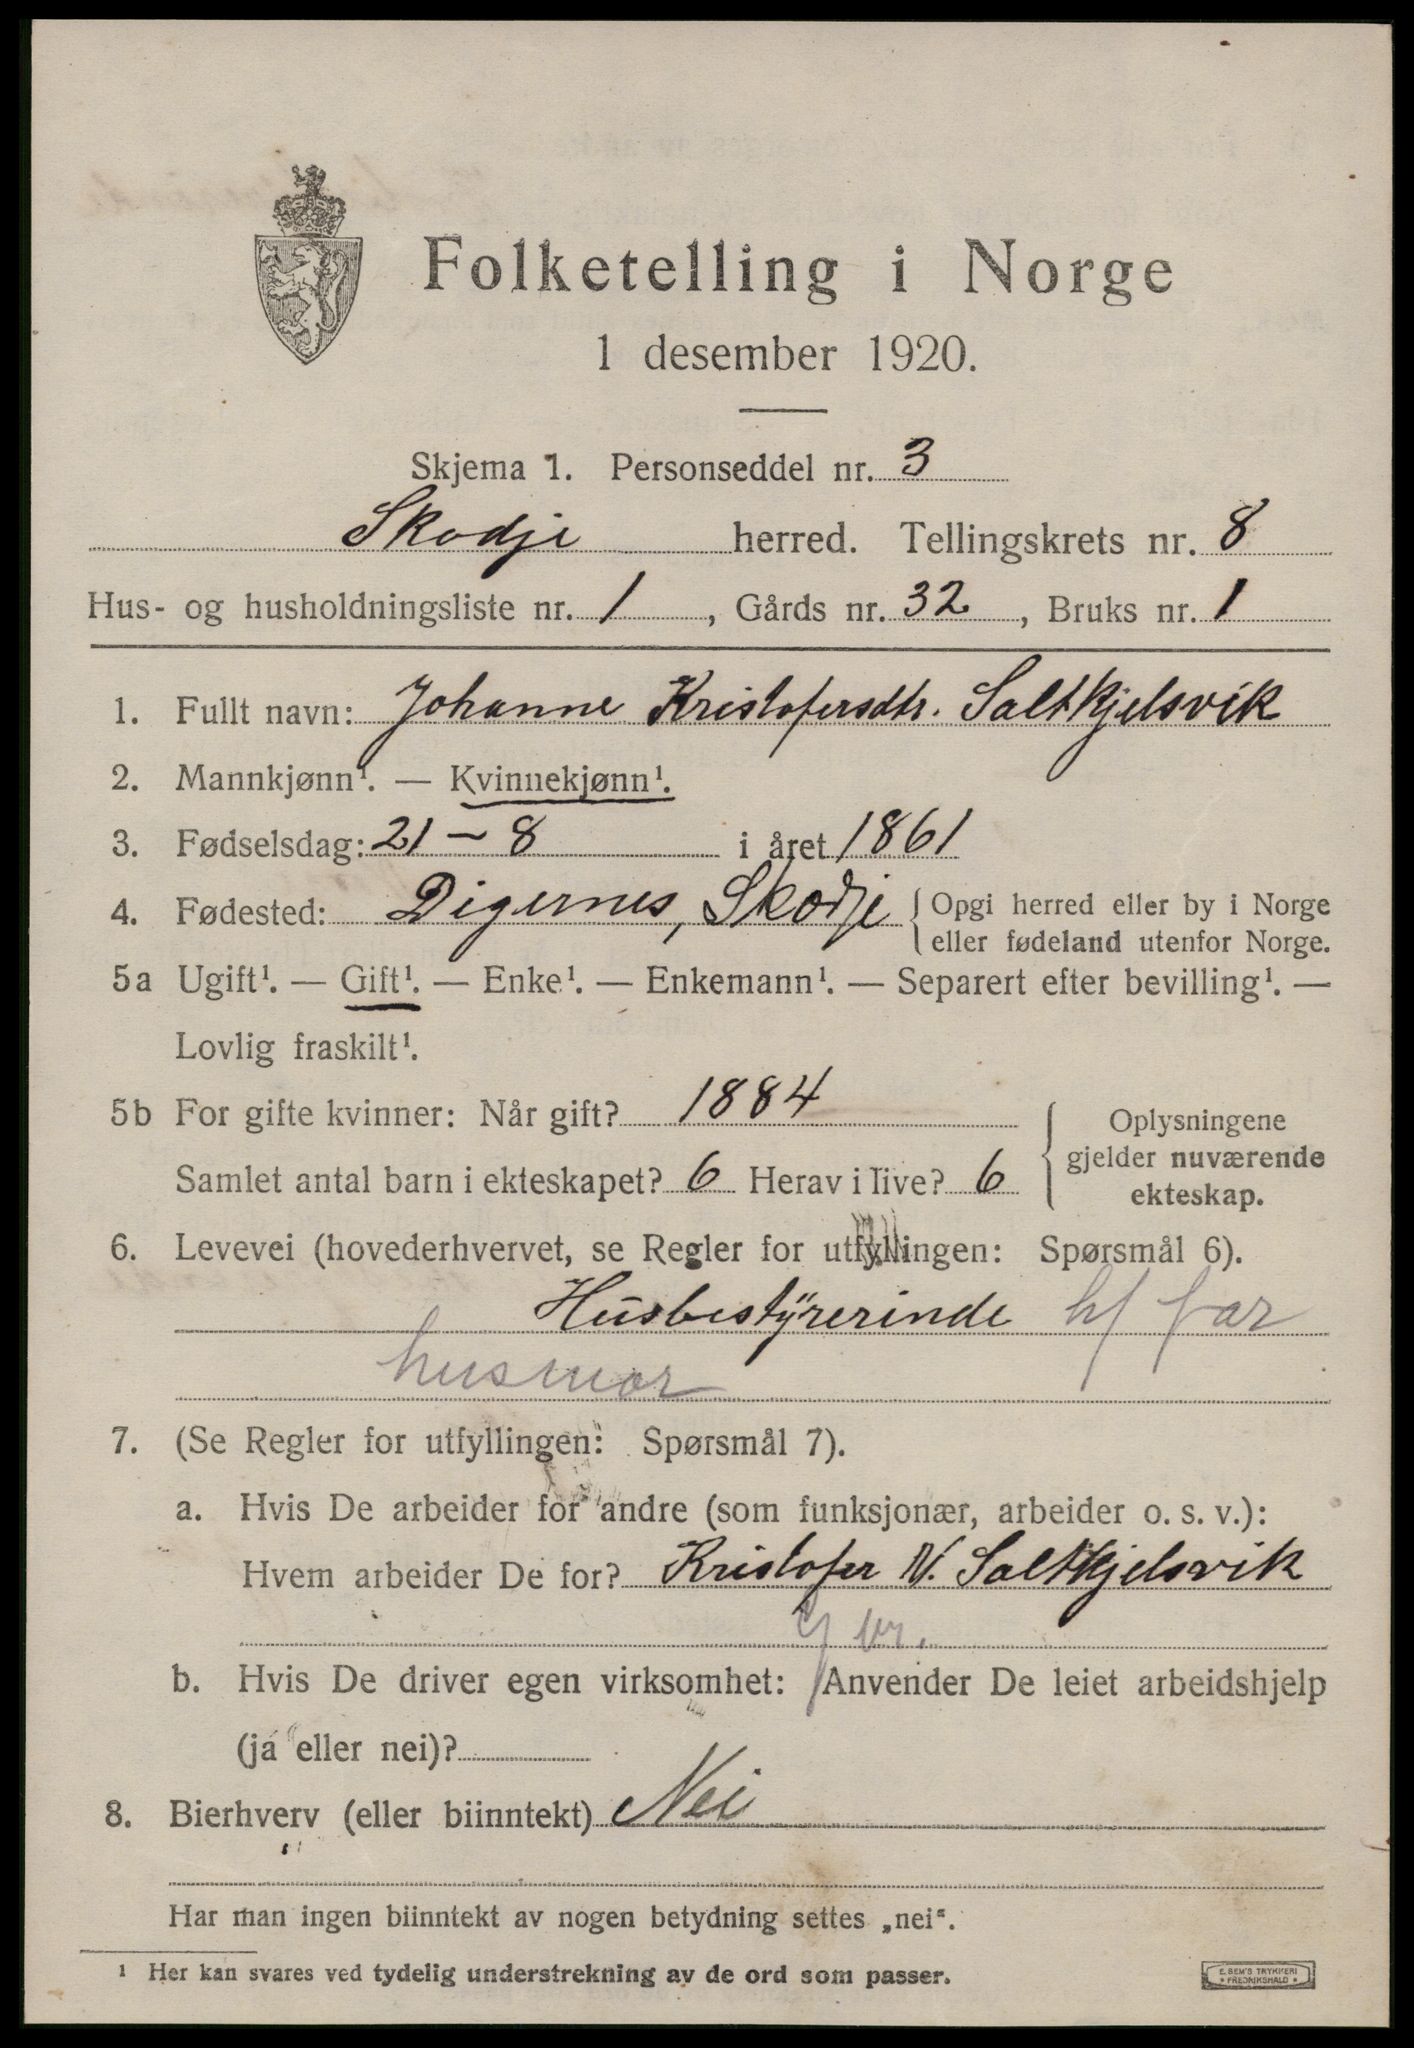 Folketelling i Norge
1 desember 1920.
Skjema 1. Personseddel nr. 3
Skodje herred. Tellingskrets nr. 8
Hus- og husholdningsliste nr. 1, Gårds nr. 32, Bruks nr. 1
1. Fullt navn: Johanne Kristofersdtr. Saltkjelsvik
2. Mannkjønn¹. — Kvinnekjønn¹.
3. Fødselsdag: 21 – 8 i året 1861
4. Fødested: Digernes, Skodje { Opgi herred eller by i Norge
eller fødeland utenfor Norge.
5a Ugift¹. — Gift¹. — Enke¹. — Enkemann¹. — Separert efter bevilling¹. —
Lovlig fraskilt¹.
5b For gifte kvinner: Når gift? 1884
Samlet antal barn i ekteskapet? 6 Herav i live? 6
{ Oplysningene
gjelder nuværende
ekteskap.
6. Levevei (hovederhvervet, se Regler for utfyllingen: Spørsmål 6).
Husbestÿrerinde h/ far
husmor
7. (Se Regler for utfyllingen: Spørsmål 7).
a. Hvis De arbeider for andre (som funksjonær, arbeider o. s. v.):
Hvem arbeider De for? Kristofer N. Saltkjelsvik
b. Hvis De driver egen virksomhet: Anvender De leiet arbeidshjelp
(ja eller nei)?
8. Bierhverv (eller biinntekt) Nei
Har man ingen biinntekt av nogen betydning settes „nei“.
¹ Her kan svares ved tydelig understrekning av de ord som passer.
E. SEM'S TRYKKERI
* FREDRIKSHALD *